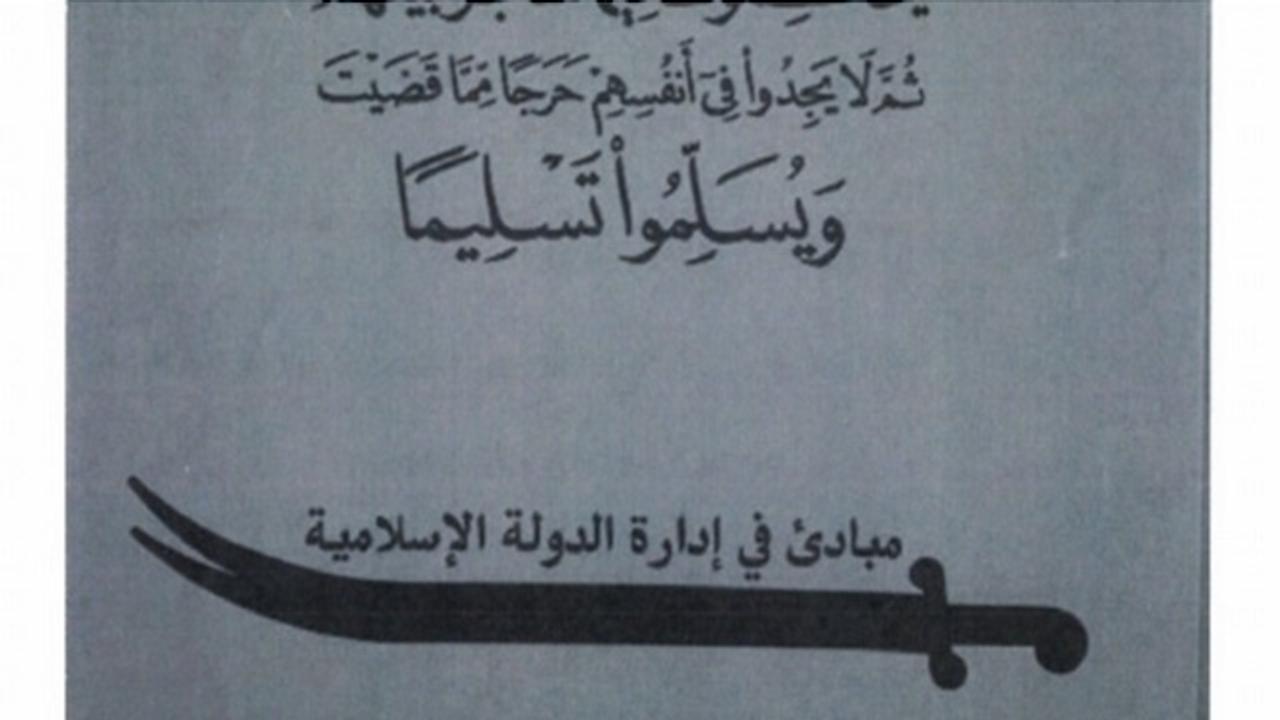 ثُمَّ لَا يَجِدُوا۟ فِىٓ أَنفُسِهِمْ حَرَجًا مِّمَّا قَضَيْتَ
وَيُسَلِّمُوا۟ تَسْلِيمًا
مبادئ في إدارة الدولة الإسلامية